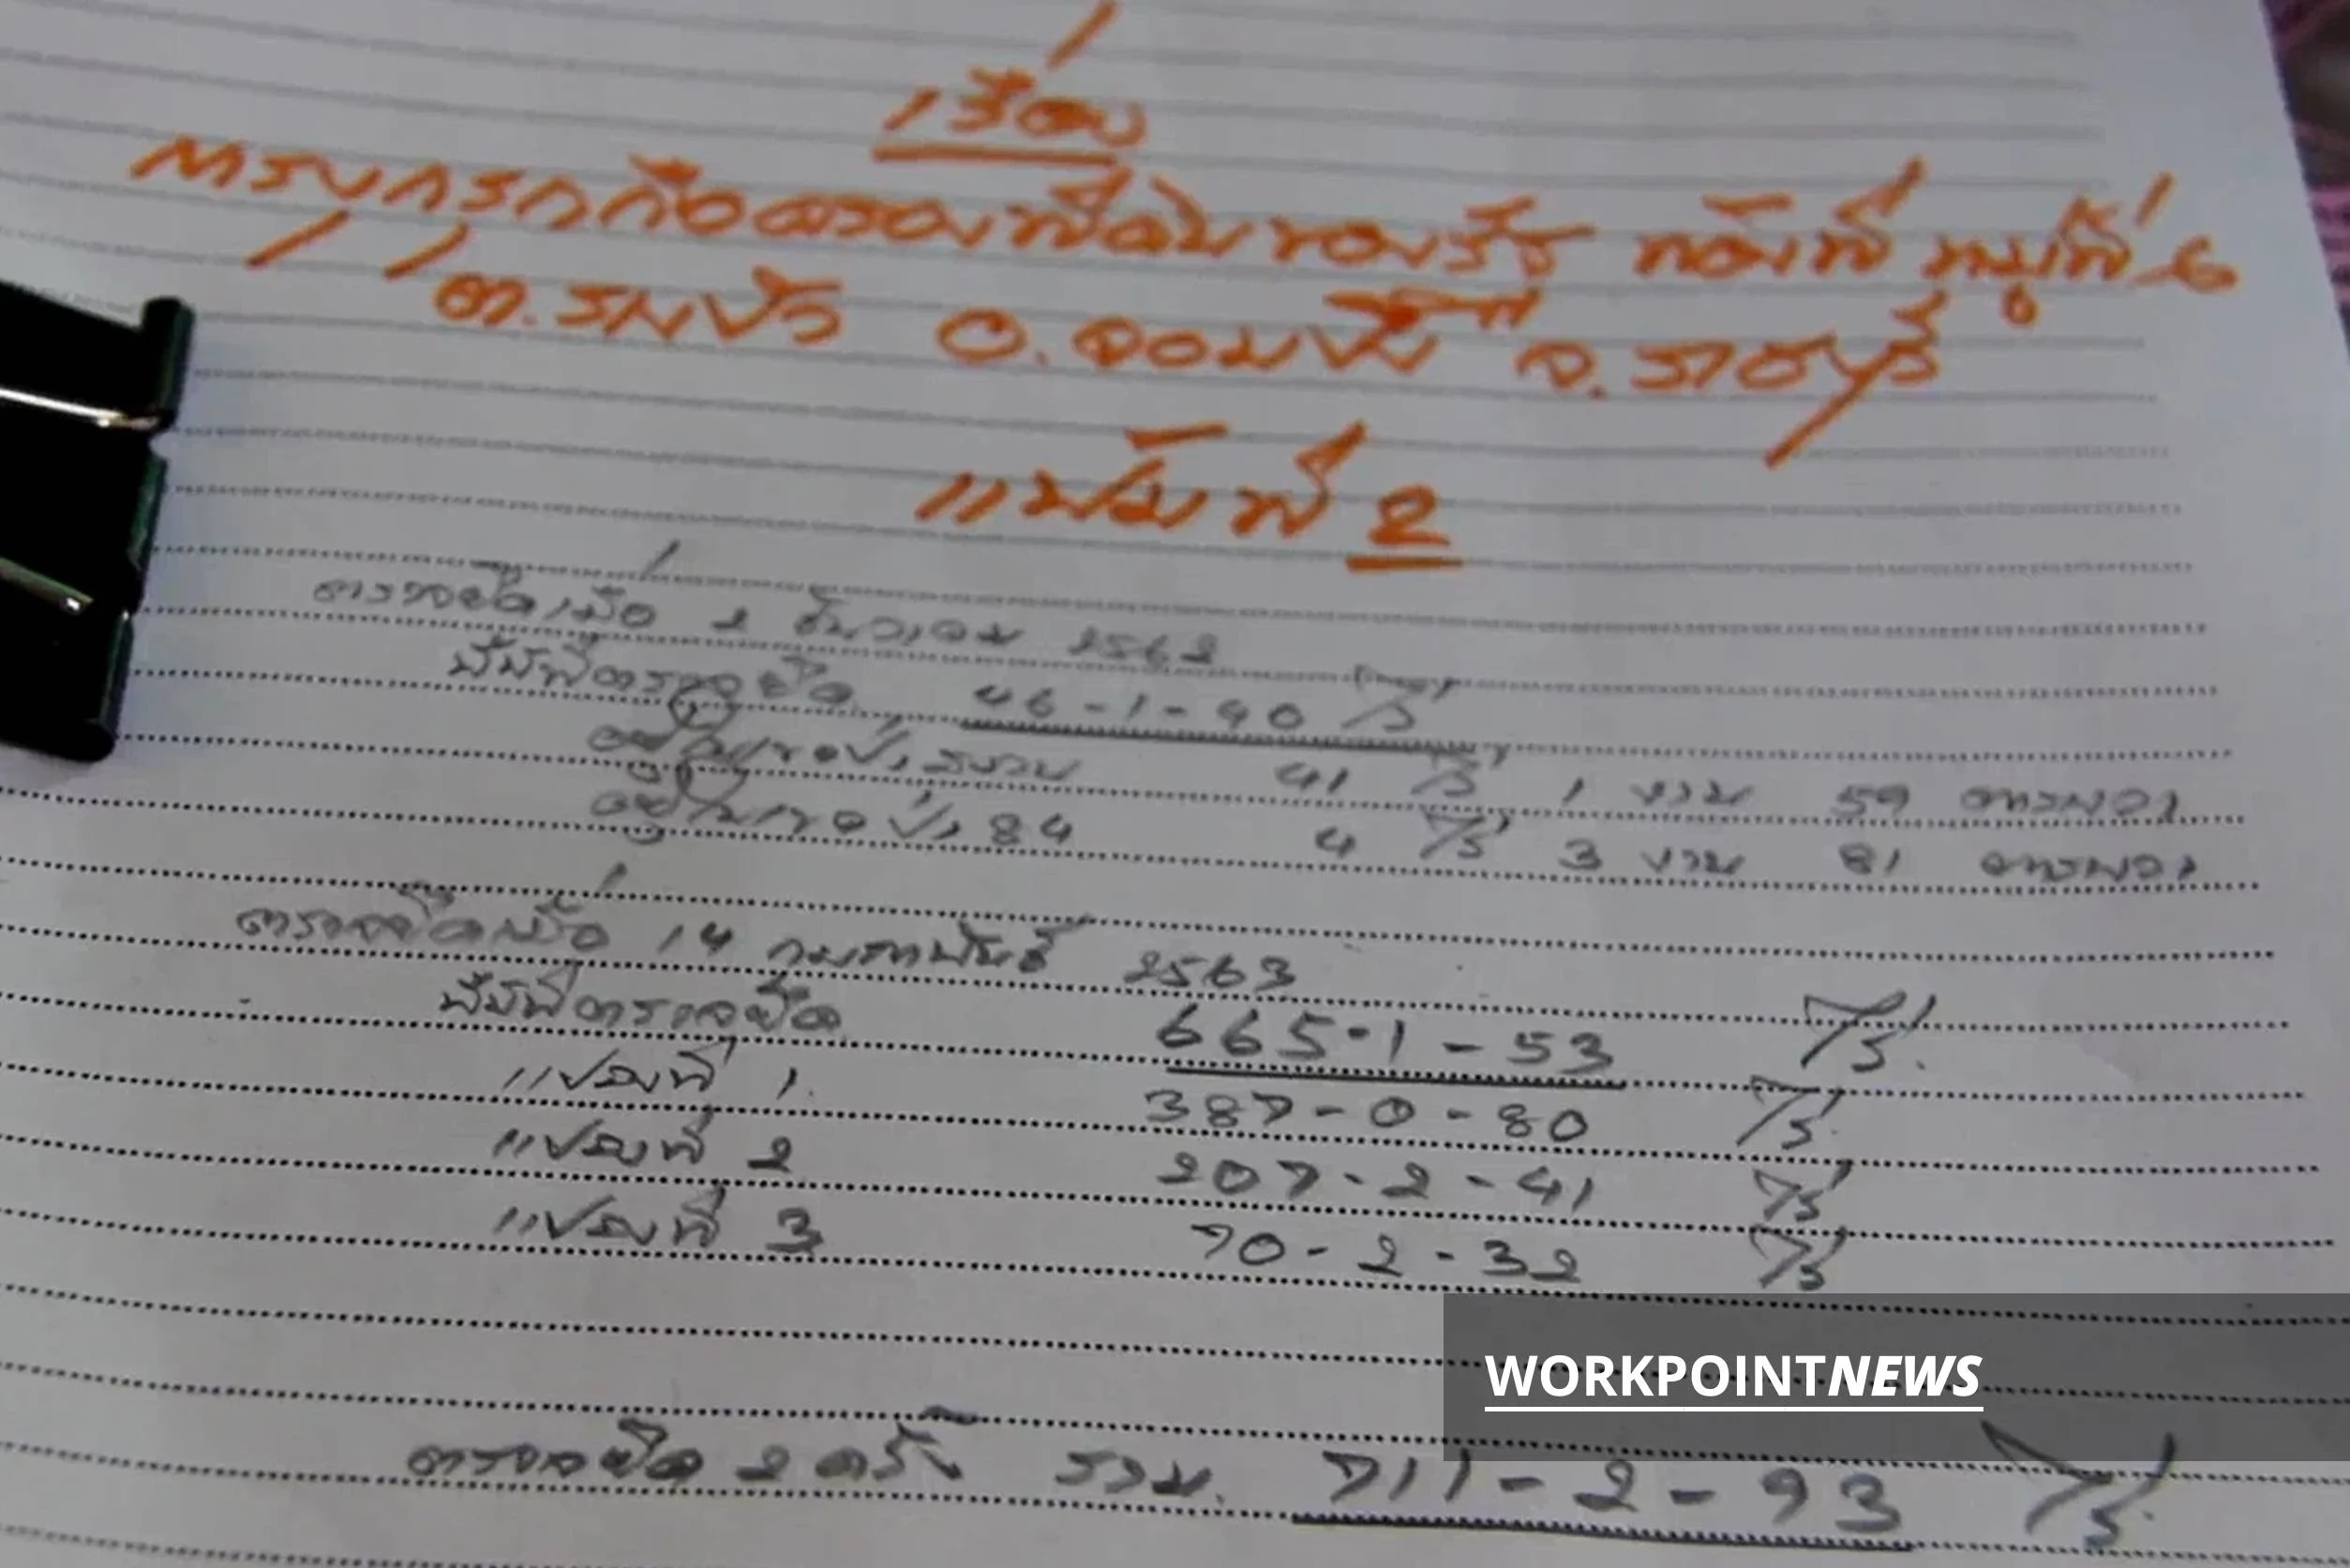 เรื่อง
การบุกรุกถือครองที่ดินของรัฐ ท้องที่ หมู่ที่ 6
ต.รางบัว อ.จอมบึง จ.ราชบุรี
แฟ้มที่ 2
ตรวจยึดเมื่อ 2 ธันวาคม 2562
พื้นที่ตรวจยึด 46-1-40 ไร่
อยู่ในเขตป่าสงวน 41 ไร่ 1 งาน 59 ตารางวา
อยู่ในเขตป่า 84 4 ไร่ 3 งาน 81 ตารางวา
ตรวจยึดเมื่อ 14 กุมภาพันธ์ 2563
พื้นที่ตรวจยึด 665-1-53 ไร่
แปลงที่ 1 387-0-80 ไร่
แปลงที่ 2 207-2-41 ไร่
แปลงที่ 3 70-2-32 ไร่
WORKPOINTNEWS
ตรวจยึด 2 ครั้ง รวม 711-2-93 ไร่